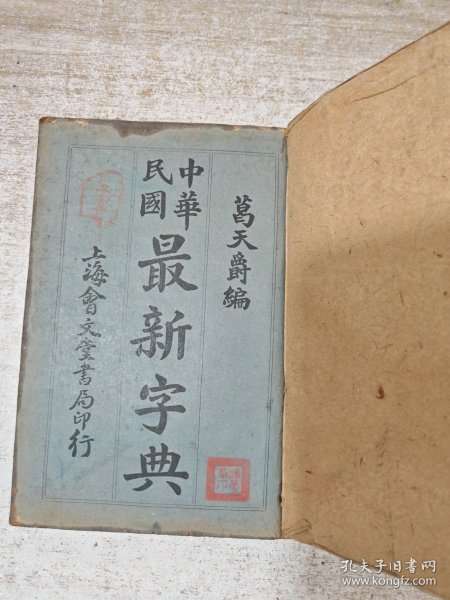 葛天爵編
中華民國
最新字典
上海會文堂書局印行
孔夫子旧书网
www.kongfz.com